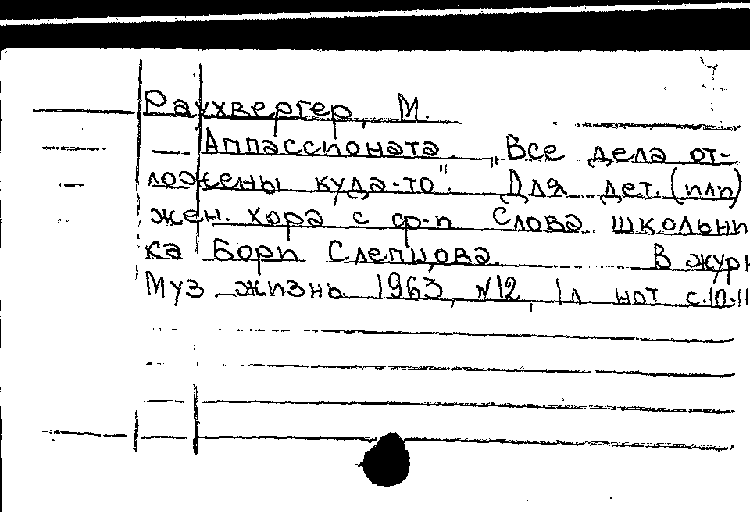 Раухвергер, М.
Аппассионата. „Все дела от-
ложены куда-то". Для дет. (или)
жен. хора с ф-п Слова школьни
ка Бори Слепцова. В жур
Муз жизнь 1963, №12, 1л нот с.10-11